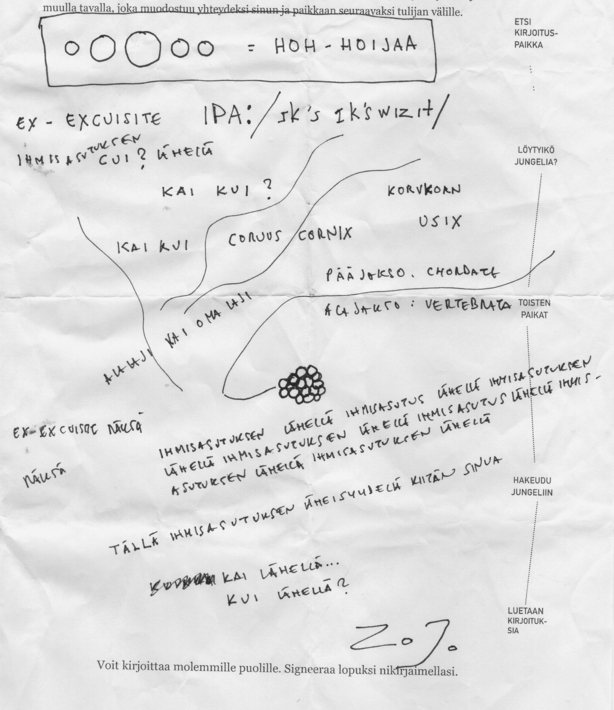 muulla tavalla, joka muodostuu yhteydeksi sinun ja paikkaan seuraavaksi tulijan välille.
ETSI
KIRJOITUS-
PAIKKA
= HOH-HOIJAA
EX-EXCUISITE IPA: /ɪk's ɪk'swɪzɪt/
IHMISASUTUKSEN
CUI? LÄHELLÄ
LÖYTYIKÖ
JUNGELIA?
KAI KUI?
KORVKORN
USIX
KAI KUI
CORVUS CORNIX
PÄÄJAKSO. CHORDATE
ALAJAKSO: VERTEBRATA
TOISTEN
PAIKAT
ALALAJI KAI OMA LAJI
EX-EXCUISITE NÄKSÄ
NÄKSÄ
IHMISASUTUKSEN LÄHELLÄ IHMISASUTUS LÄHELLÄ IHMISASUTUKSEN
LÄHELLÄ IHMISASUTUKSEN LÄHELLÄ IHMISASUTUS LÄHELLÄ IHMIS-
ASUTUKSEN LÄHELLÄ IHMISASUTUKSEN LÄHELLÄ
HAKEUDU
JUNGELIIN
TÄLLÄ IHMISASUTUKSEN LÄHEISYYDELLÄ KIITÄN SINUA
KAI LÄHELLÄ...
KUI LÄHELLÄ?
LUETAAN
KIRJOITUK-
SIA
Z.J.
Voit kirjoittaa molemmille puolille. Signeeraa lopuksi nikirjaimellasi.